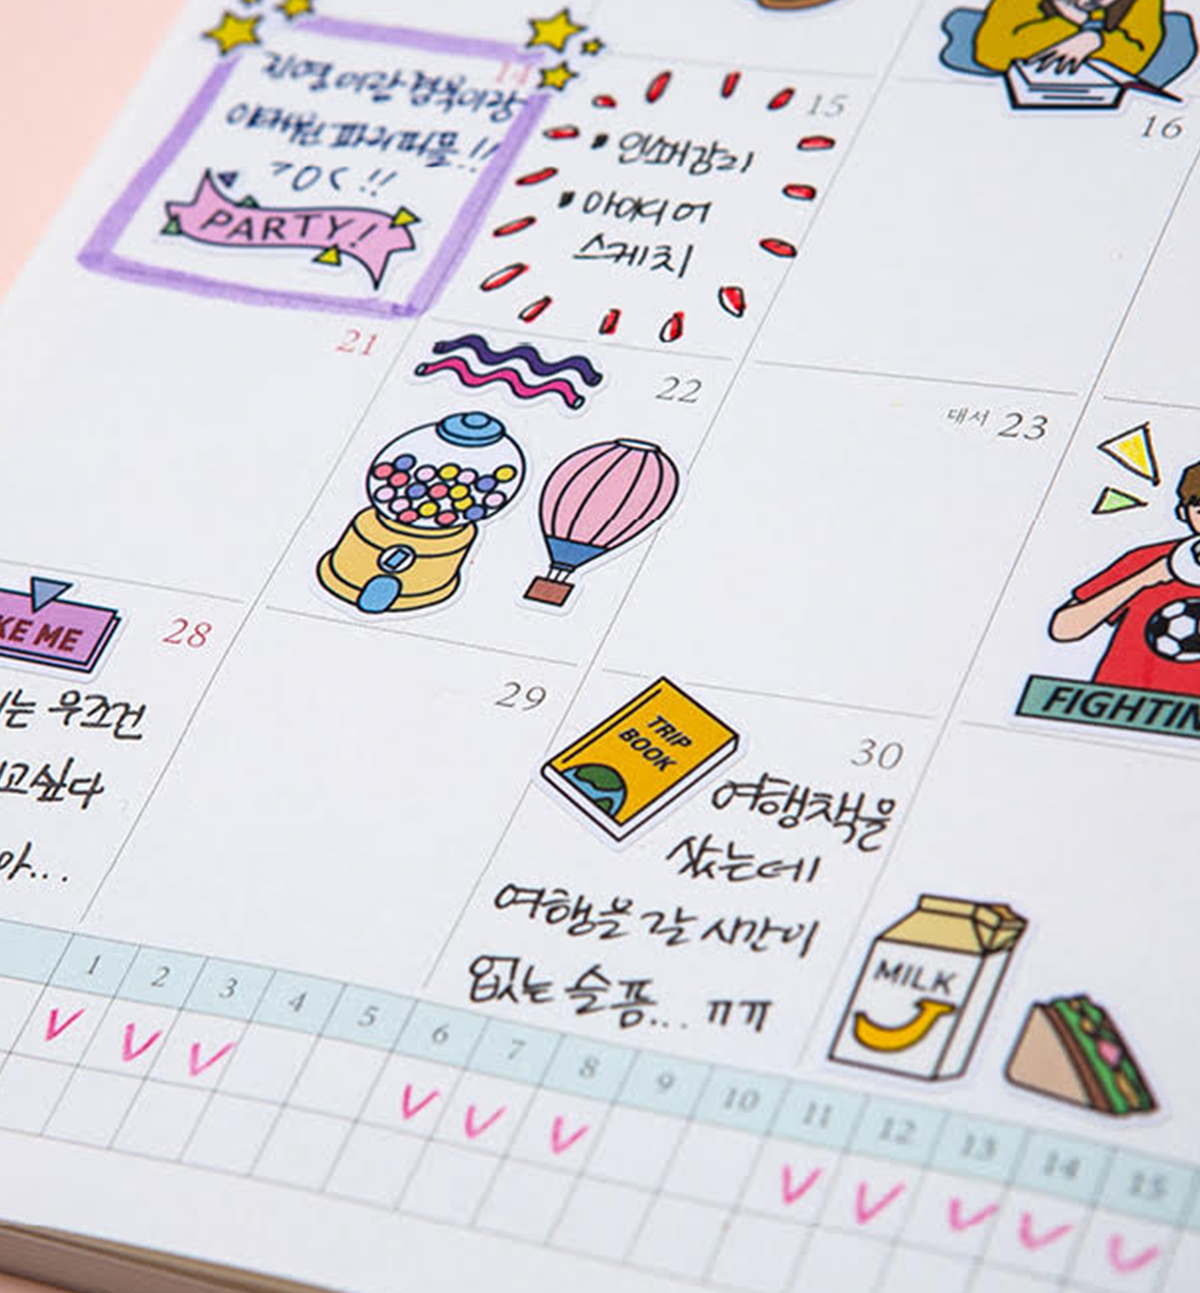 14
지열이랑 경복이랑
이태원 파리피플!!
가0ㅏ!!
PARTY!
15
인스타감리
아이디어
스케치
16
21
22
대서 23
KE ME
28
는 무조건
고싶다
아...
29
TRIP
BOOK
30
여행책을
샀는데
여행을 갈 시간이
없는 슬픔... ㅠㅠ
FIGHTIN
MILK
1 2 3 4 5 6 7 8 9 10 11 12 13 14 15